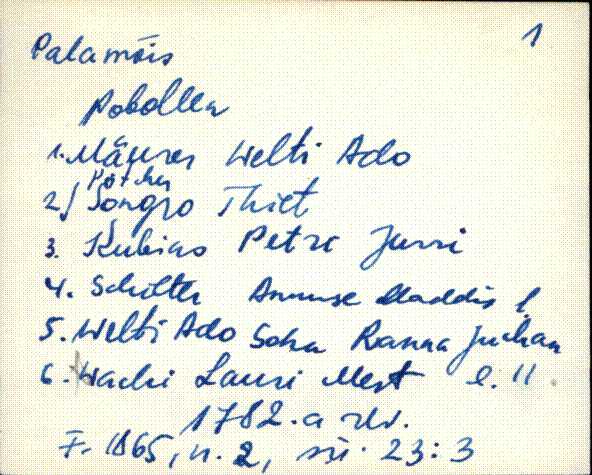 1
Palamõis
Robollen
1. Mäurer Welti Ado
Pötcher
2) Songro Thiet
3. Kubias Petre Jurri
4. Schötter Annuse Maddis l.
5. Welti Ado Sohn Ranna Juhan
6. Wachi Lauri Mest l. 11
1782. a rev.
F. 1865, n. 2, sü. 23:3